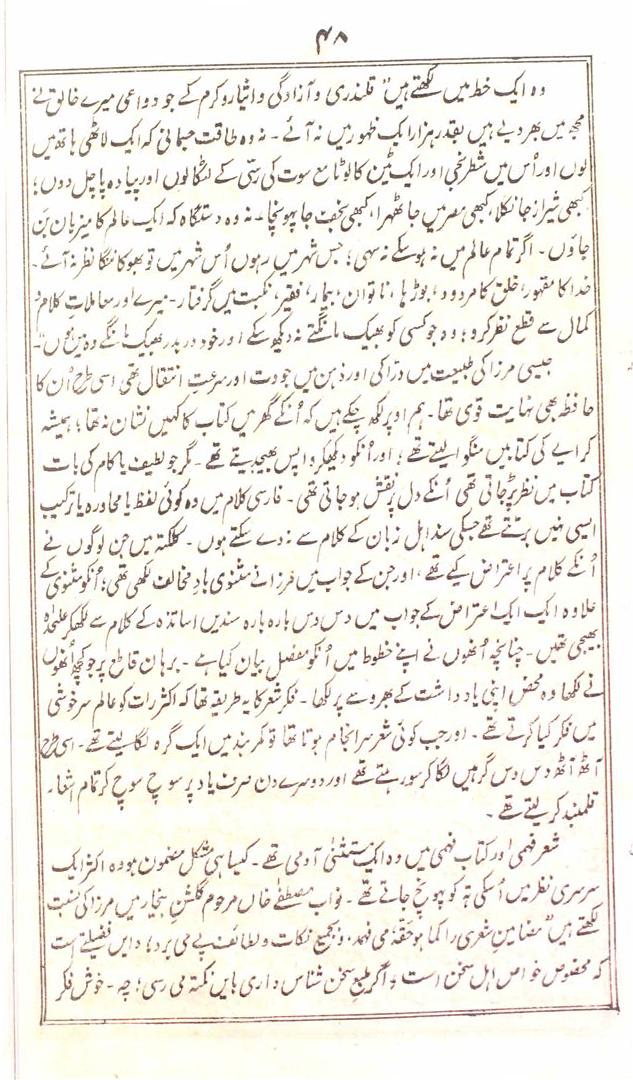 ۴۸
وہ ایک خط میں لکھتے ہیں "قلندری و آزادگی و ایثار و کرم کے جو دواعی میرے خالق نے
مجھ میں بھر دیے ہیں بقدر ہزار ایک ظہور میں نہ آئے۔ نہ وہ طاقت جسمانی کہ ایک لاٹھی ہاتھ میں
لوں اور اُس میں شطرنجی اور ایک ٹین کا لوٹا مع سوت کی رسّی کے لٹکا لوں اور پیادہ پا چل دوں؛
کبھی شیراز جا نکلا، کبھی مصر میں جا ٹھہرا، کبھی نجف جا پہونچا۔ نہ وہ دستگاہ کہ ایک عالم کا میزبان بَن
جاؤں۔ اگر تمام عالم میں نہ ہو سکے نہ سہی؛ جس شہر میں رہوں اُس شہر میں تو بھوکا ننگا نظر نہ آئے۔
خدا کا مقہور، خلق کا مردود، بوڑھا، ناتوان، بیمار، فقیر، نکبت میں گرفتار۔ میرے اور معاملاتِ کلام و
کمال سے قطع نظر کرو؛ وہ جو کسی کو بھیک مانگتے نہ دیکھ سکے اور خود در بدر بھیک مانگے وہ میں ہوں"۔
جیسی مرزا کی طبیعت میں درّاکی اور ذہن میں جودت اور سرعتِ انتقال تھی اسی طرح اُن کا
حافظہ بھی نہایت قوی تھا۔ ہم اوپر لکھ چکے ہیں کہ اُنکے گھر میں کتاب کا کہیں نشان نہ تھا؛ ہمیشہ
کرایے کی کتابیں منگوا لیتے تھے؛ اور اُنکو دیکھکر واپس بھیجدیتے تھے۔ مگر جو لطیف یا کام کی بات
کتاب میں نظر پڑ جاتی تھی اُنکے دل پر نقش ہو جاتی تھی۔ فارسی کلام میں وہ کوئی لفظ یا محاورہ یا ترکیب
ایسی نہیں برتتے تھے جسکی سند اہل زبان کے کلام سے نہ دے سکتے ہوں۔ کلکتہ میں جن لوگوں نے
اُنکے کلام پر اعتراض کیے تھے، اور جن کے جواب میں مرزا نے مثنوی باد مخالف لکھی تھی؛ اُنکو مثنوی کے
علاوہ ایک ایک اعتراض کے جواب میں دس دس بارہ بارہ سندیں اساتذہ کے کلام سے لکھکر علیٰحدہ
بھیجی تھیں۔ چنانچہ اُنھوں نے اپنے خطوط میں اُنکو مفصل بیان کیا ہے۔ برہان قاطع پر جو کچھ اُنھوں
نے لکھا وہ محض اپنی یادداشت کے بھروسے پر لکھا۔ فکر شعر کا یہ طریقہ تھا کہ اکثر رات کو عالم سرخوشی
میں فکر کیا کرتے تھے۔ اور جب کوئی شعر سرانجام ہوتا تھا تو کمربند میں ایک گرہ لگا لیتے تھے۔ اسی طرح
آٹھ آٹھ دس دس گرہیں لگا کر سو رہتے تھے اور دوسرے دن صرف یاد پر سوچ سوچ کر تمام اشعار
قلمبند کر لیتے تھے۔
شعر فہمی اور کتاب فہمی میں وہ ایک مستثنٰی آدمی تھے۔ کیسا ہی مشکل مضمون ہو وہ اکثر ایک
سرسری نظر میں اُسکی تہ کو پہونچ جاتے تھے۔ نواب مصطفٰے خاں مرحوم گلشنِ بیخار میں مرزا کی نسبت
لکھتے ہیں "مضامینِ شعری را کما ہو حقّہٗ می فہمد، و بجمیع نکات و لطائف پے می برد؛ و ایں فضیلتے است
کہ مخصوصِ خواصِ اہلِ سخن است و اگر طبعِ سخن شناس داری بایں نکتہ می رسی؛ چہ۔ خوش فکر